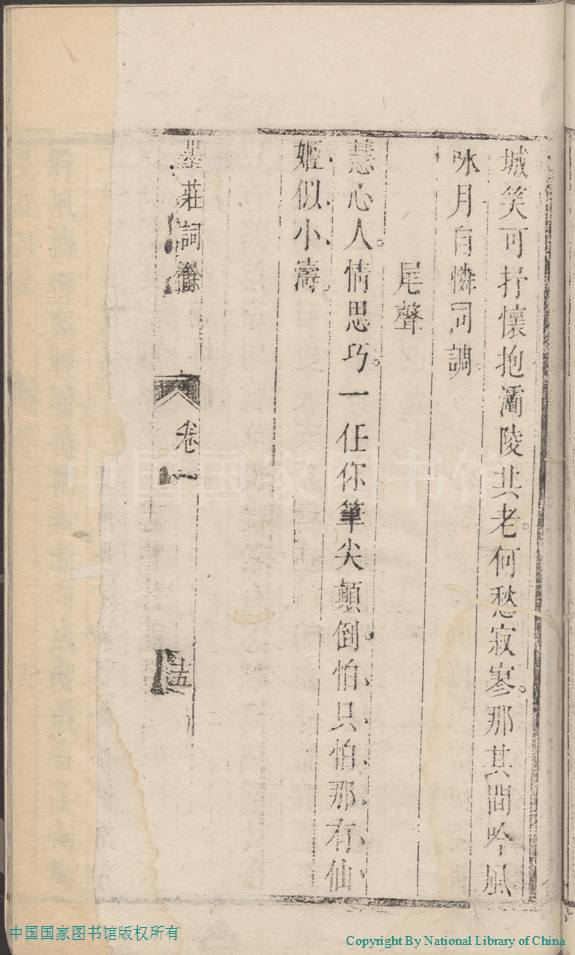 城笑可抒懷抱灞陵共老。何愁寂寥。那其間吟風
咏月自憐同調。
尾聲
慧心人。情思巧。一任你筆尖顛倒怕只怕那有仙
姬似小濤。
墨莊詞餘
卷一
十五
中国国家图书馆版权所有
Copyright By National Library of China